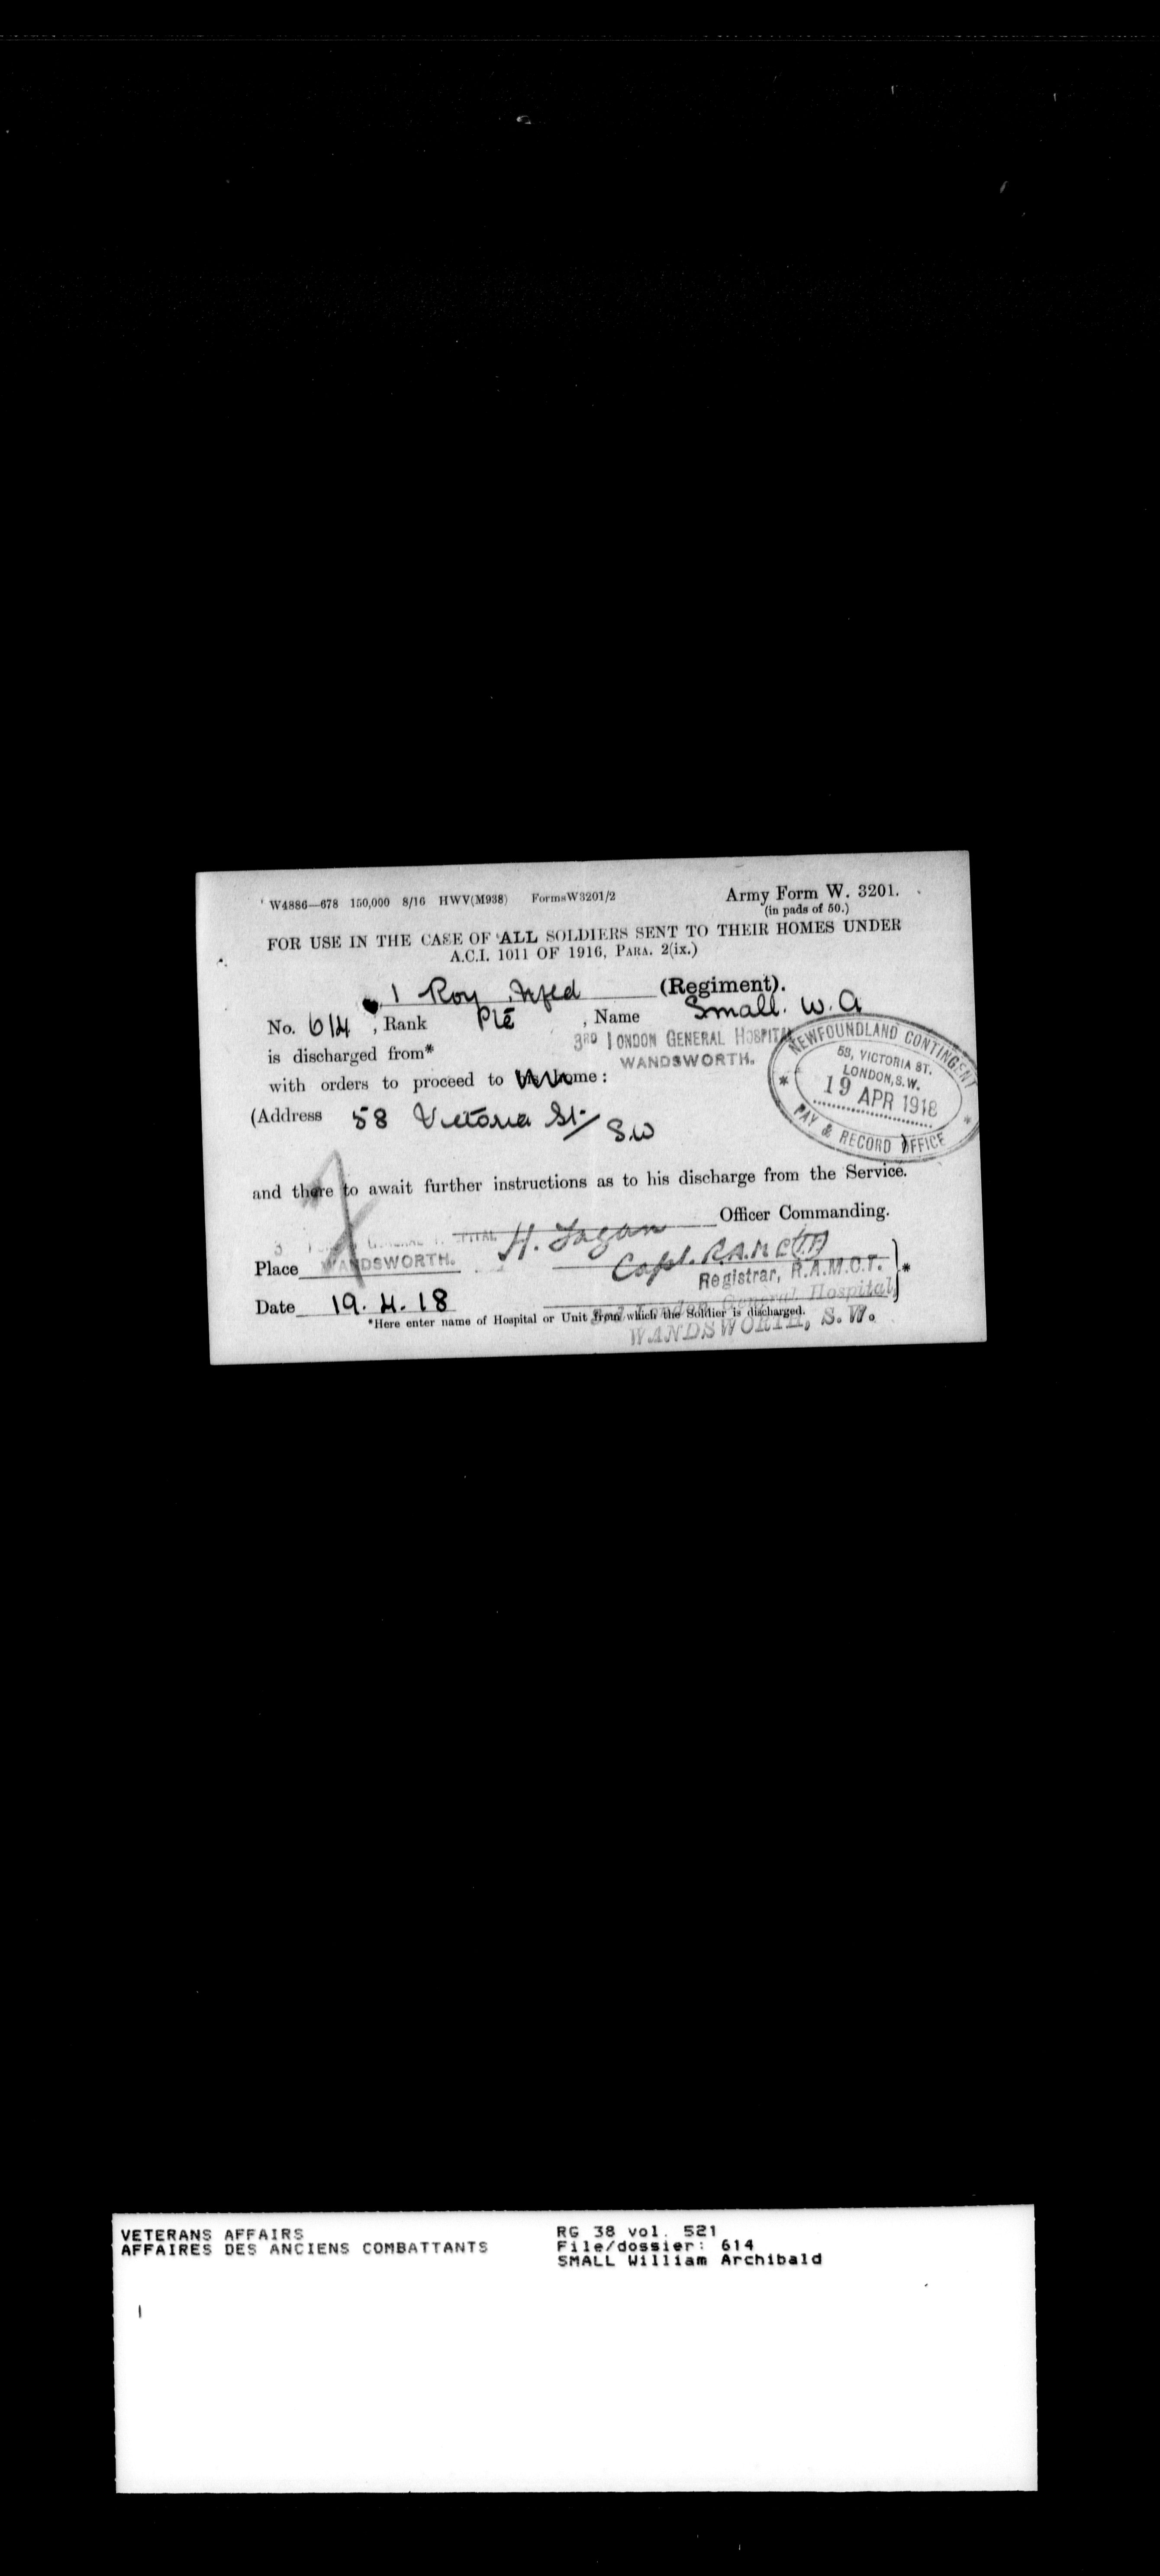 W4886—678 150,000 8/16 HWV(M938) Forms W3201/2
Army Form W. 3201.
(in pads of 50.)
FOR USE IN THE CASE OF ALL SOLDIERS SENT TO THEIR HOMES UNDER
A.C.I. 1011 OF 1916, PARA. 2(ix.)
1 Roy. Nfld (Regiment).
No. 614, Rank Pte, Name Small. W. A
is discharged from* 3RD LONDON GENERAL HOSPITAL
WANDSWORTH.
with orders to proceed to home:
(Address 58 Victoria St. S.W
NEWFOUNDLAND CONTINGENT
58, VICTORIA ST.
LONDON, S.W.
19 APR 1918
PAY & RECORD OFFICE
and there to await further instructions as to his discharge from the Service.
Officer Commanding.
Capt. R.A.M.C.(T.F)
Place WANDSWORTH.
Registrar, R.A.M.C.T.
3rd London General Hospital,
Date 19.4.18
*Here enter name of Hospital or Unit from which the Soldier is discharged.
WANDSWORTH, S.W.
VETERANS AFFAIRS
AFFAIRES DES ANCIENS COMBATTANTS
RG 38 vol. 521
File/dossier: 614
SMALL William Archibald